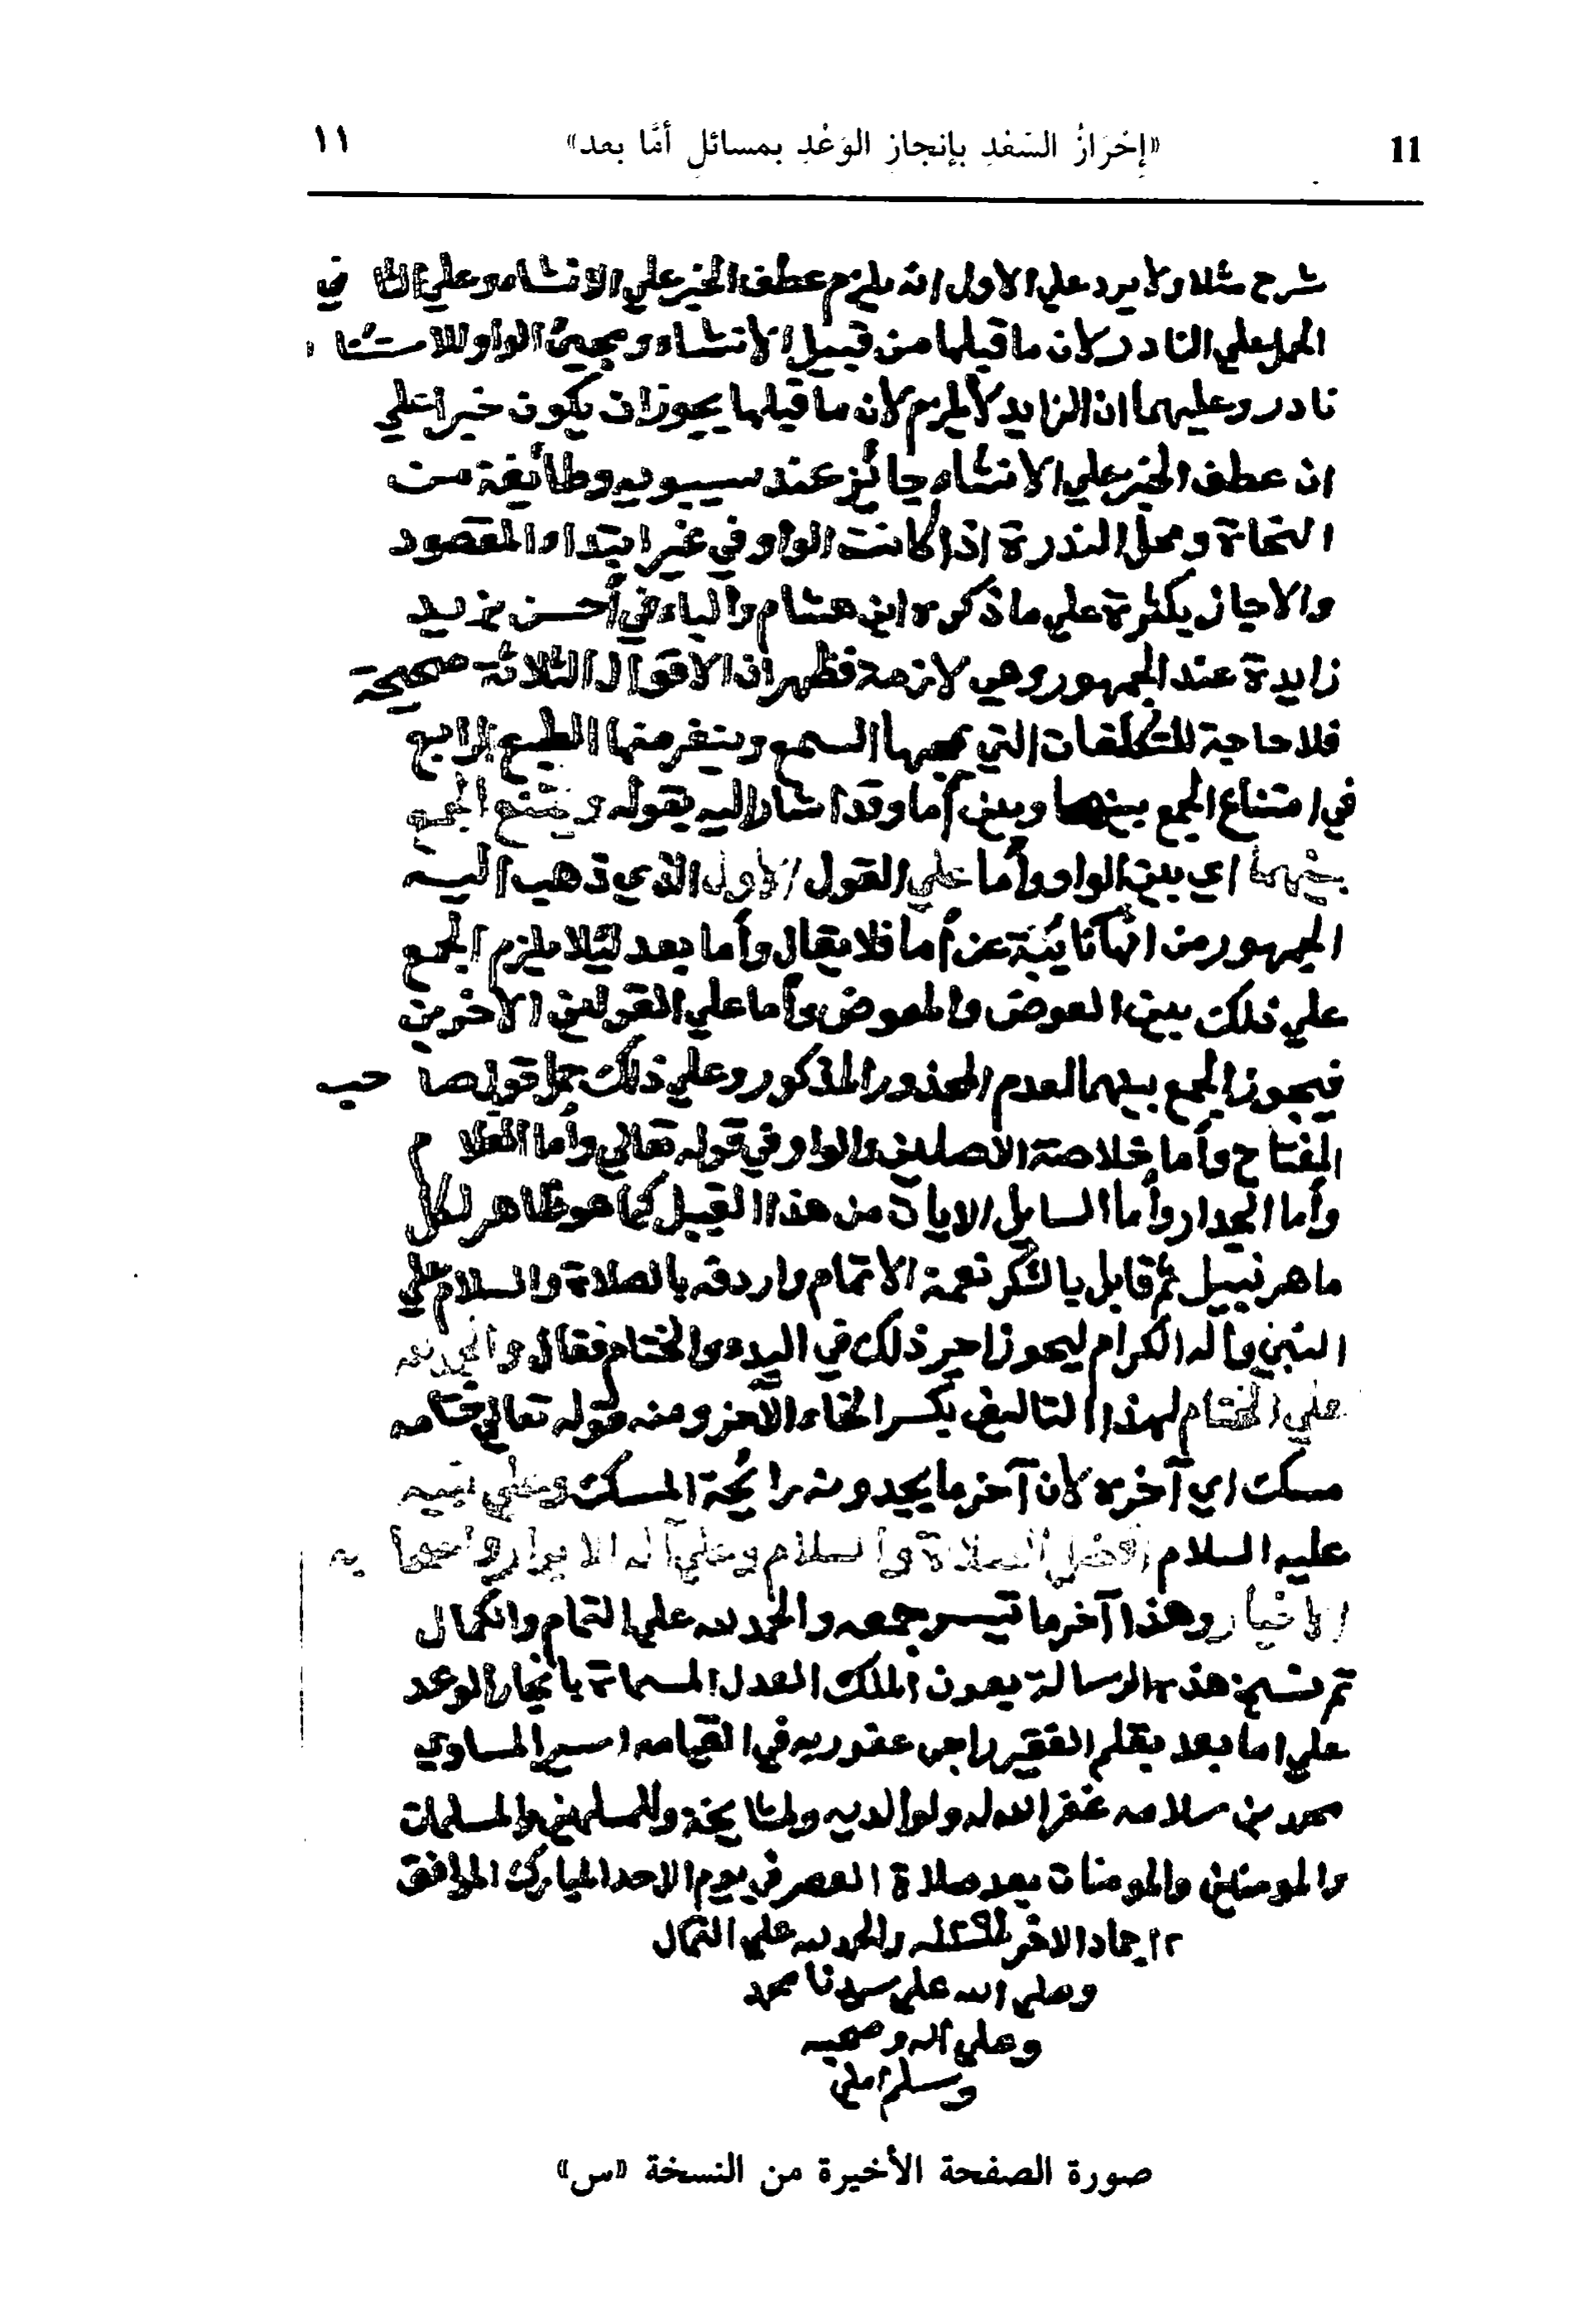 11 «إحْرَازُ السَعْدِ بإنجازِ الوَعْدِ بمسائلِ أمَّا بعد» ١١
شرح مثلا ولا يرد علي الاول انه يلزم عطف الخبر علي الانشاء وعلي الثاني
الحمل علي النادر لان ما قبلها من قبيل الانشاء ومجيئ الواو للاستئنا
نادر وعليهما ان الزايد لا يلزم لان ما قبلها يجوز ان يكون خبرا علي
ان عطف الخبر علي الانشاء جائز عند سيبويه وطائفة من
النحاة ومحل الندرة اذا كانت الواو في غير ابتداء المقصود
والا جاز بكثرة علي ما ذكره ابن هشام والباء في أحسن بزيد
زايدة عند الجمهور وهي لازمة فظهر ان الاقوال الثلاثة صحيحة
فلا حاجة للتكلفات التي يمجها السمع وينفر منها الطبع الرابع
في امتناع الجمع بينها وبين أما وقد اشار اليه بقوله ويمتنع الجمع
بينهما اي بين الواو وأما علي القول الاول الذي ذهب اليه
الجمهور من انها نايبة عن أما فلا يقال وأما بعد لئلا يلزم الجمع
علي ذلك بين العوض والمعوض وأما علي القولين الاخرين
فيجوز الجمع بينهما لعدم المحذور المذكور وعلي ذلك حمل قول صاحب
المفتاح وأما خلاصة الاصلين والواو في قوله تعالي وأما الغلام
وأما الجدار وأما السايل الايات من هذا القبيل كما هو ظاهر لكل
ماهر نبيل ثم قابل بالشكر نعمة الاتمام واردفه بالصلاة والسلام علي
النبي وآله الكرام ليحوز اجر ذلك في البدء والختام فقال والحمد لله
علي الختام لهذا التاليف بكسر الخاء الآخر ومنه قوله تعالي ختامه
مسك اي آخره لان آخر ما يجدونه رايحة المسك وعلي نبيه
عليه السلام افضل الصلاة والسلام وعلي آله الابرار واصحابه
الاخيار وهذا آخر ما تيسر جمعه والحمد لله علي التمام والكمال
تم نسخ هذه الرسالة بعون الملك العدل المسماة بانجاز الوعد
علي اما بعد بقلم الفقير راجي عفو ربه في القيامه اسير المساوي
محمد بن سلامه غفر الله له ولوالديه ولمشايخه وللمسلمين والمسلمات
والمومنين والمومنات بعد صلاة العصر في يوم الاحد المبارك الموافق
جماد الاخر والحمد لله علي الكمال
وصلي الله علي سيدنا محمد
وعلي اله وصحبه
وسلم امين
صورة الصفحة الأخيرة من النسخة «س»